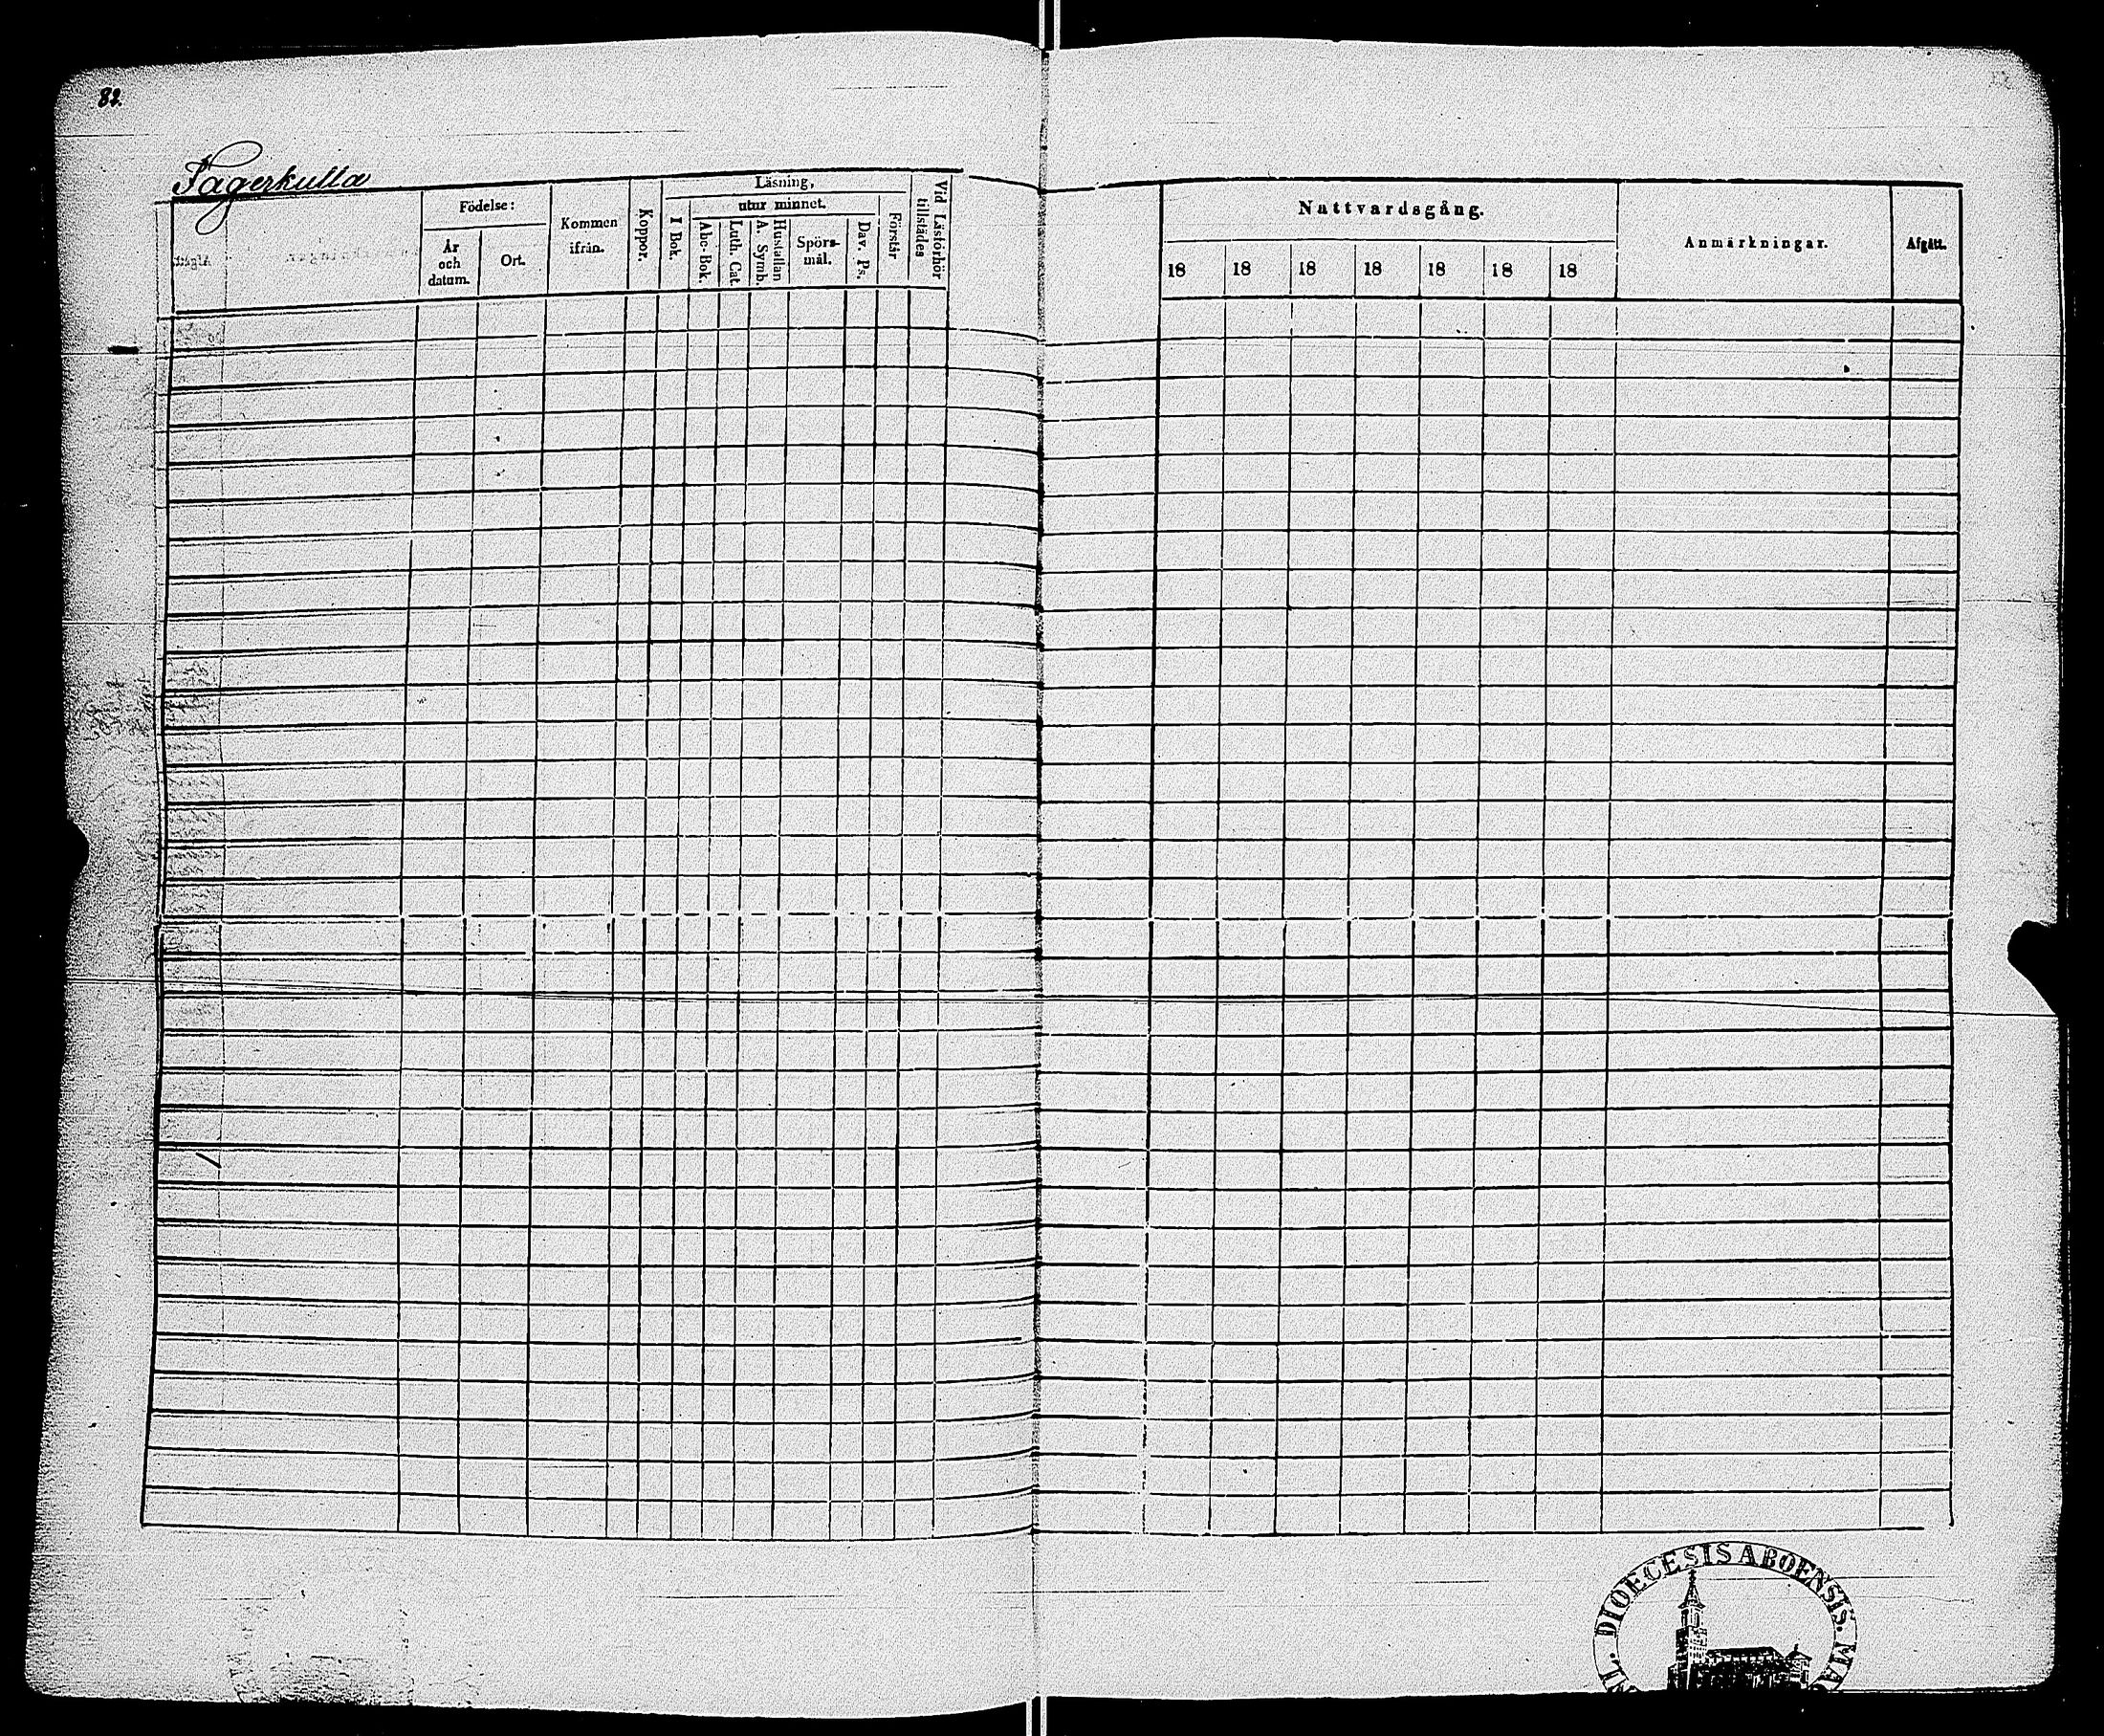 82.
Fagerkulla
Födelse:
År och datum.
Ort.
Kommen ifrån.
Koppor.
Läsning,
I Bok.
utur minnet.
Abc-Bok.
Luth. Cat.
Hustaflan
A. Symb.
Spörs-
mål.
Dav. Ps.
Förstår
Vid Läsförhör
tillstädes
Nattvardsgång.
18 18 18 18 18 18 18
Anmärkningar.
Afgått.
DIOECESIS ABOENSIS. MA